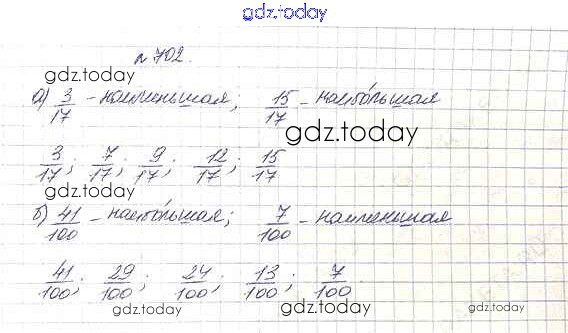 gdz.today
№ 702.
gdz.today
а) 3/17 - наименьшая; 15/17 - наибольшая
gdz.today
3/17; 7/17; 9/17; 12/17; 15/17
gdz.today
б) 41/100 - наибольшая; 7/100 - наименшая
41/100; 29/100; 24/100; 13/100; 7/100
gdz.today gdz.today gdz.today